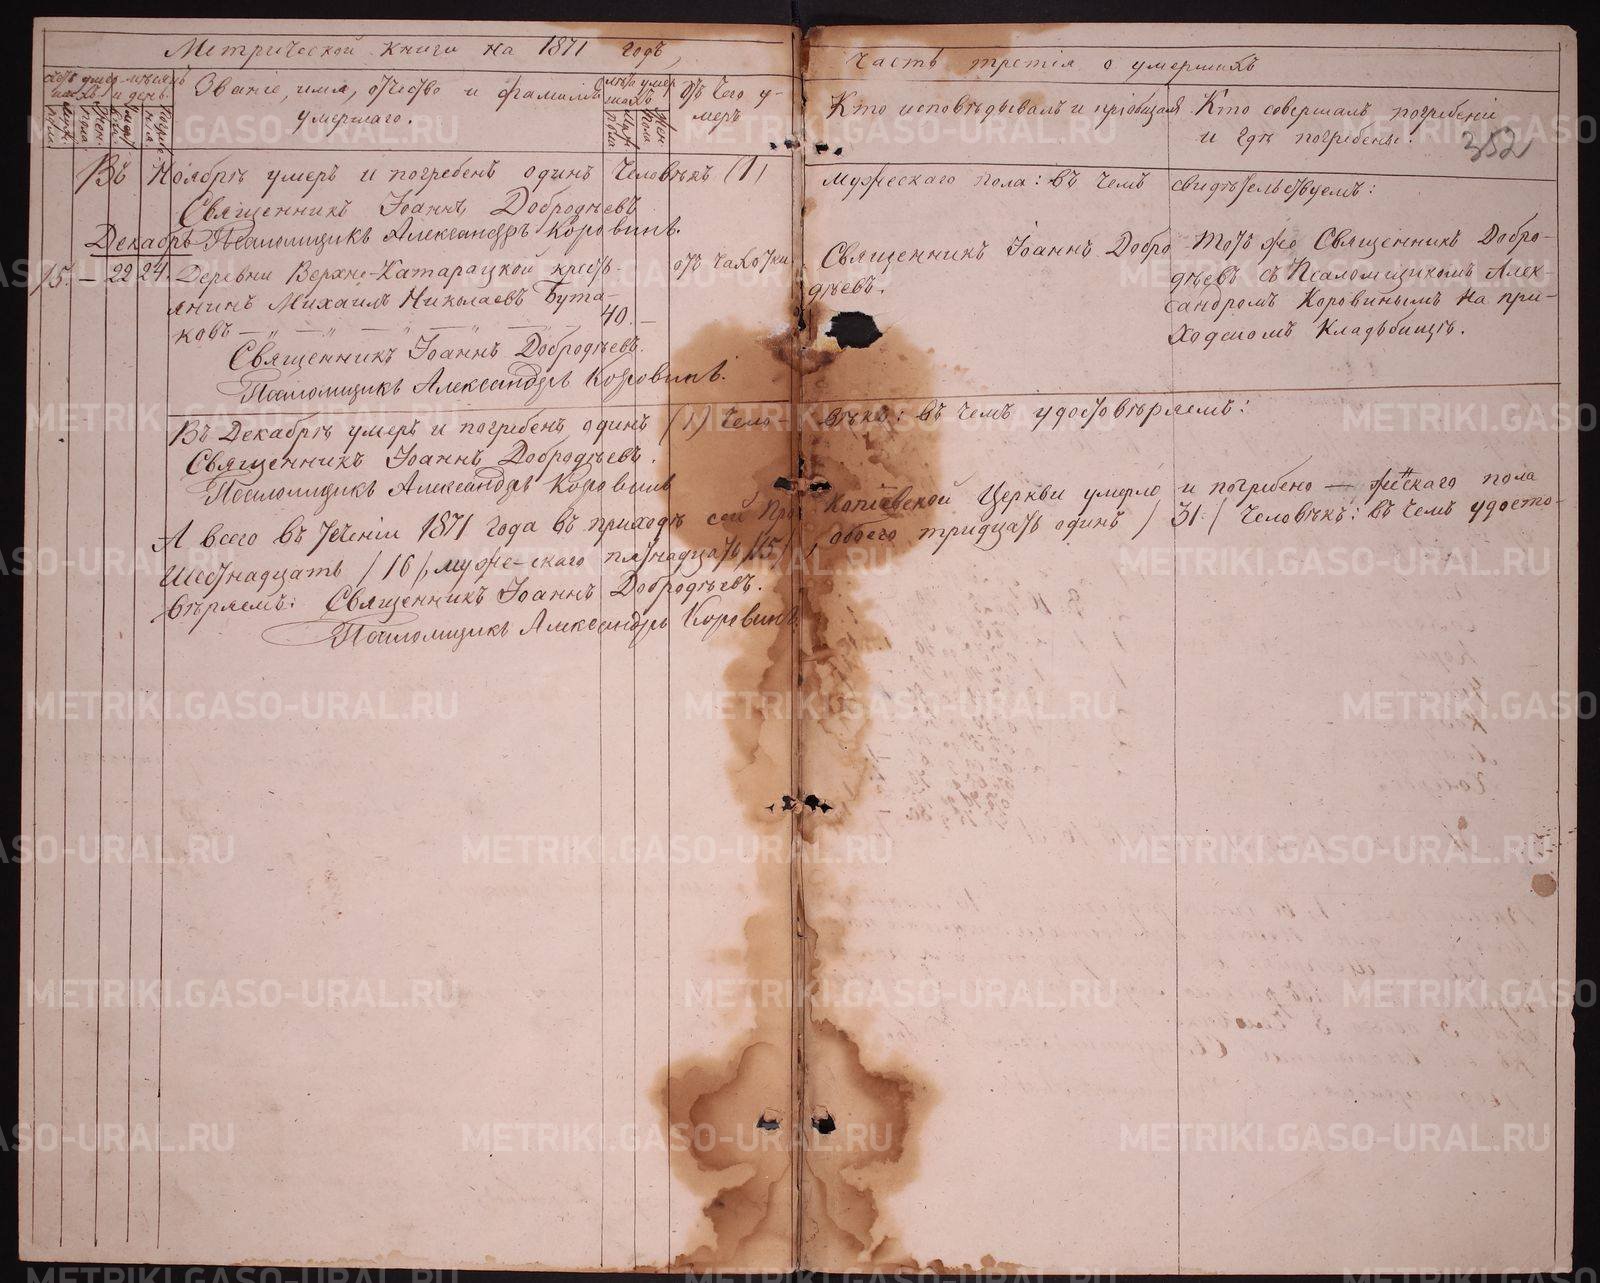 Метрической книги на 1871 годъ,
Часть третія о умершихъ
Званіе, имя, отчество и фамилія
умершаго.
Отъ чего у-
меръ
Кто исповѣдывалъ и пріобщалъ
Кто совершалъ погребеніе
и гдѣ погребены.
352
Въ Ноябрѣ умеръ и погребенъ одинъ человѣкъ (1)
мужескаго пола: въ чемъ свидѣтельствуемъ:
Священникъ Іоаннъ Добродѣевъ
Псаломщикъ Александръ Коровинъ.
Декабрь
15. — 22 24.
Деревни Верхне-Катарацкой кресть-
янинъ Михаилъ Николаевъ Бута-
ковъ
40. —
отъ чахотки
Священникъ Іоаннъ Добро
дѣевъ.
Тотъ же Священникъ Добро-
дѣевъ съ Псаломщикомъ Алек-
сандромъ Коровинымъ на при-
ходскомъ кладбищѣ.
Священникъ Іоаннъ Добродѣевъ.
Псаломщикъ Александръ Коровинъ.
Въ Декабрѣ умеръ и погребенъ одинъ (1) чело
вѣкъ: въ чемъ удостовѣряемъ:
Священникъ Іоаннъ Добродѣевъ.
Псаломщикъ Александръ Коровинъ
А всего въ теченіи 1871 года въ приходѣ сей Про
копіевской Церкви умерло и погребено — жескаго пола
Шестнадцать /16/, муже-скаго пятнадцать /15/,
обоего тридцать одинъ /31/ человѣкъ: въ чемъ удосто-
вѣряемъ: Священникъ Іоаннъ Добродѣевъ.
Псаломщикъ Александръ Коровинъ.
METRIKI.GASO-URAL.RU